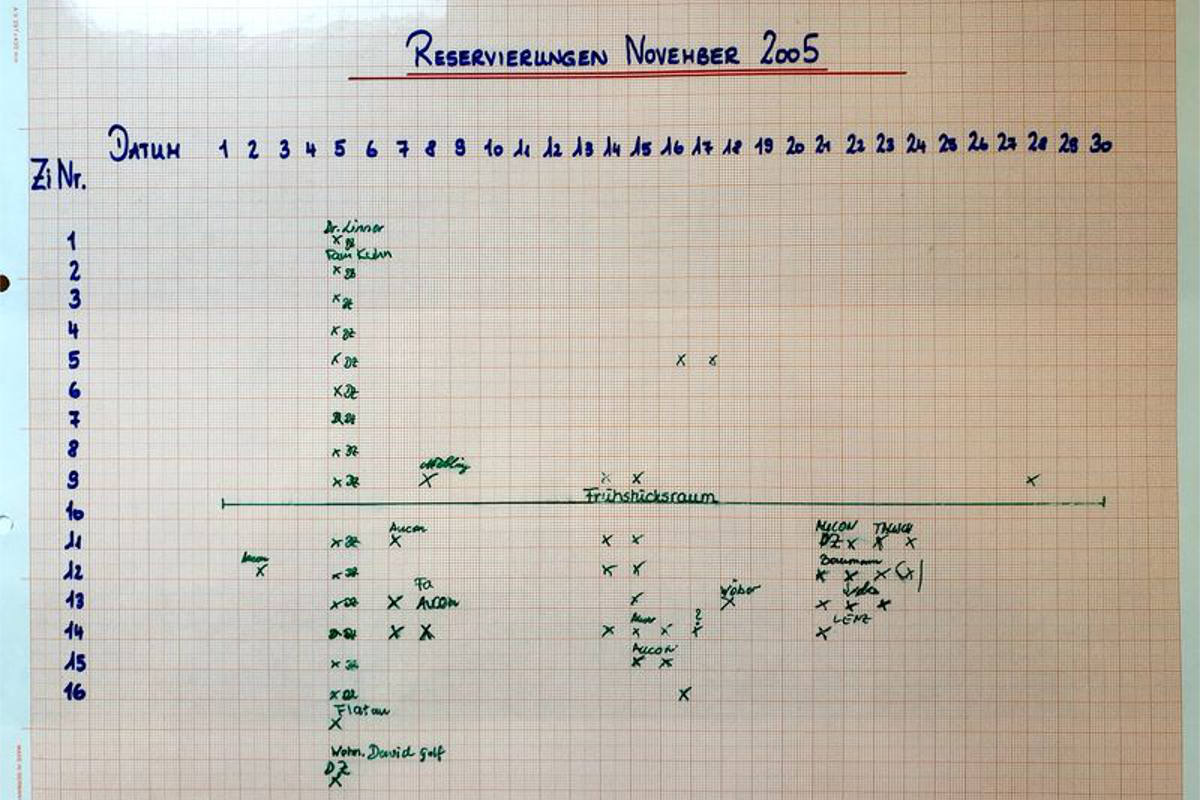 RESERVIERUNGEN NOVEMBER 2005
DATUM 1 2 3 4 5 6 7 8 9 10 11 12 13 14 15 16 17 18 19 20 21 22 23 24 25 26 27 28 29 30
Zi Nr.
Dr. Linner
1 x
Fam Kuhn
2 x
3 x
4 x DZ
5 x DZ x x
6 x DZ
7
8 x DZ
9 x DZ x x x x
Frühstücksraum
10
Aucon AUCON
11 x DZ x x x DZ x x x
Baumann
12 x x DZ x x x x x (x)
Fa Wöber
13 x DZ x Aucon x x x x x
? LENZ
14 x x x x x x x
AUCON
15 x DZ x x
16 x DZ x
Flatau
x
Wohn. David Golf
DZ
x